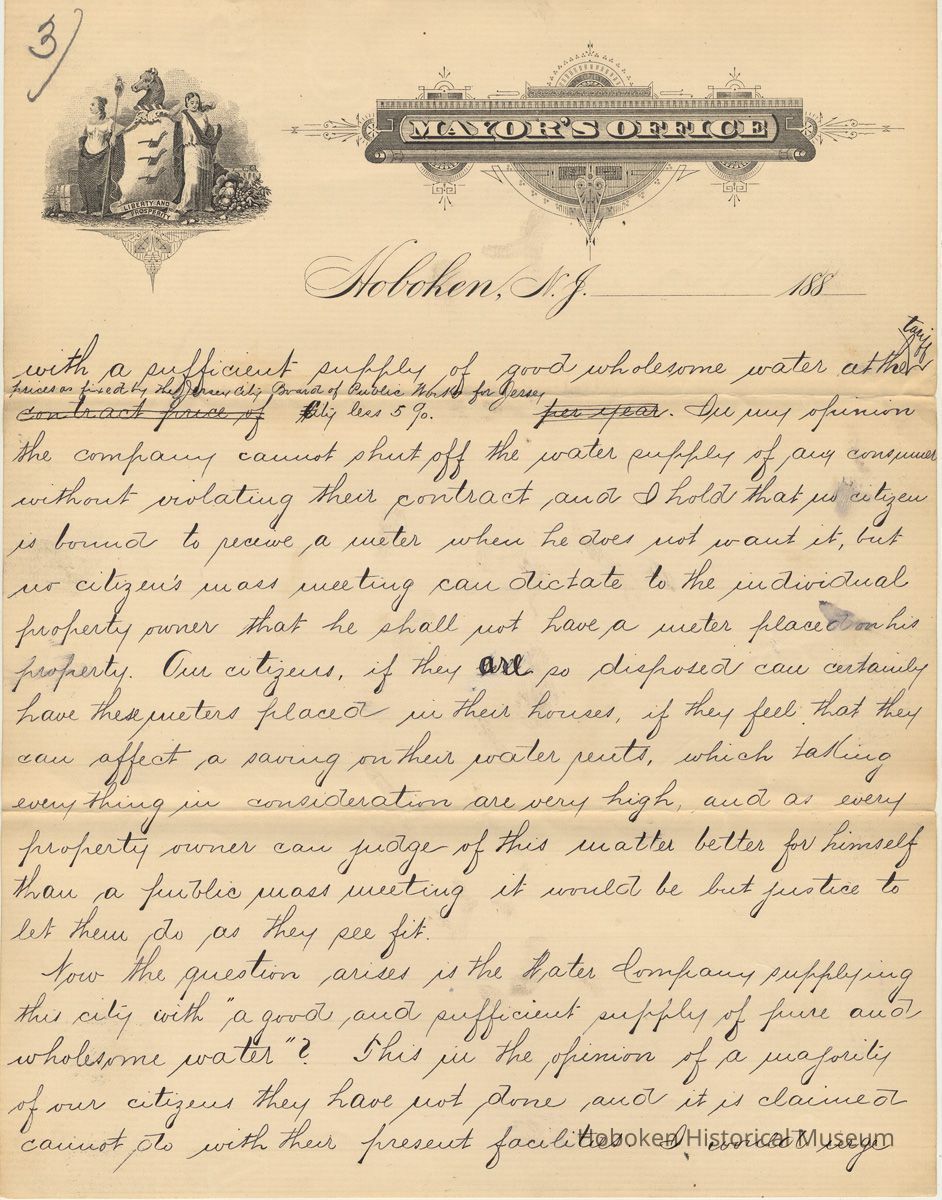 3)
LIBERTY AND
PROSPERITY
MAYOR'S OFFICE
Hoboken, N. J. 188
with a sufficient supply of good wholesome water at the tariff
prices as fixed by the Jersey City Board of Public Works for Jersey
contract price of City less 5%. per year. In my opinion
the company cannot shut off the water supply of any consumer
without violating their contract and I hold that no citizen
is bound to receive a meter when he does not want it, but
no citizen's mass meeting can dictate to the individual
property owner that he shall not have a meter placed on his
property. Our citizens, if they are so disposed can certainly
have these meters placed in their houses, if they feel that they
can affect a saving on their water rents, which taking
every thing in consideration are very high, and as every
property owner can judge of this matter better for himself
than a public mass meeting it would be but justice to
let them do as they see fit.
Now the question arises is the Water Company supplying
this city with "a good and sufficient supply of pure and
wholesome water"? This in the opinion of a majority
of our citizens they have not done and it is claimed
cannot do with their present facilities I would urge
Hoboken Historical Museum